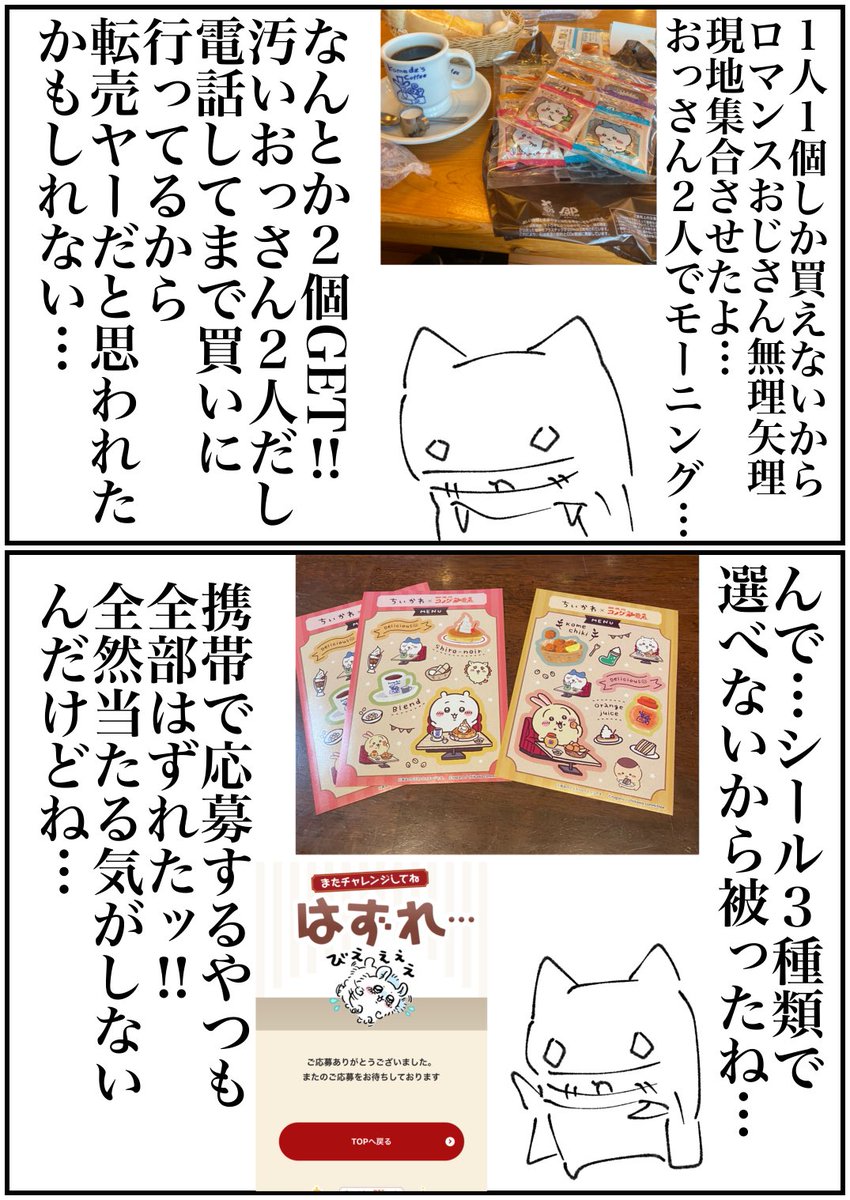 1人1個しか買えないから
ロマンスおじさん無理矢理
現地集合させたよ…
おっさん2人でモーニング…
Komeda's
Coffee
なんとか2個GET!!
汚いおっさん2人だし
電話してまで買いに
行ってるから
転売ヤーだと思われた
かもしれない…
んで…シール3種類で
選べないから被ったね…
ちいかわ×コメダ珈琲店
MENU
Delicious
shiro-noir
Blend
ちいかわ×コメダ珈琲店
MENU
Kome
chiki
Delicious
orange
juice
携帯で応募するやつも
全部はずれたッ!!
全然当たる気がしない
んだけどね…
またチャレンジしてね
はずれ…
びえぇぇぇ
ご応募ありがとうございました。
またのご応募をお待ちしております
TOPへ戻る